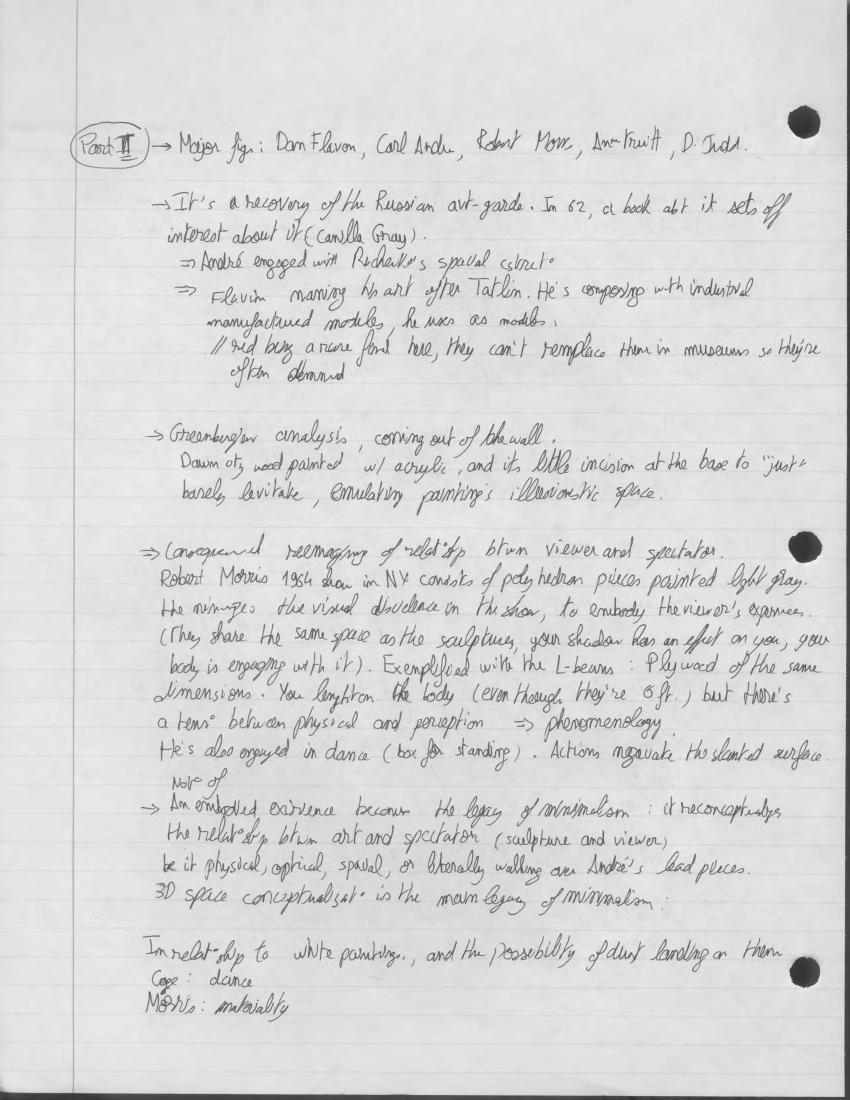 Part II → Major figs: Dan Flavon, Carl Andre, Robert Morris, Ann Truitt, D. Judd.
→ It's a recovery of the Russian avt-garde. In 62, a book abt it sets off
interest about it (Camilla Gray).
⇒ André engaged with spatial
⇒ Flavin naming his art after Tatlin. He's composing with industrial
manufactured modules, he uses as models.
// red being a rare find here, they can't remplace them in museums so they're
often
→ analysis, coming out of the wall.
Dawn wood painted w/ acrylic, and its little incision at the base to "just"
barely levitate, emulating painting's illusionistic space.
⇒ reemaging of relat°ship btwn viewer and spectator.
Robert Morris 1964 show in NY consists of polyhedron pieces painted light gray.
He the visual in the show, to embody the viewer's experiences.
(They share the same space as the sculptures, your shadow has an effect on you, your
body is engaging with it). Exemplified with the L-beams: Plywood of the same
dimensions. You the body (even though they're 8 ft.) but there's
a tens° between physical and perception ⇒ phenomenology.
He's also engaged in dance (box for standing). Actions the slanted surface.
Not° of
→ An embodied existence becomes the legacy of minimalism: it reconceptualizes
the relat°ship btwn art and spectator (sculpture and viewer)
be it physical, optical, spatial, or literally walking over André's lead pieces.
3D space conceptualizat° is the main legacy of minimalism.
In relat°ship to white paintings, and the possibility of dust landing on them
Cage: dance
Morris: materiality